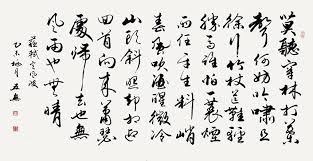 莫聽穿林打葉
聲何妨吟嘯且
徐行竹杖芒鞋輕
勝馬誰怕一蓑煙
雨任平生料峭
春風吹酒醒微冷
山頭斜照卻相迎
回首向來蕭瑟
處歸去也無
風雨也無晴
蘇軾定風波
乙未